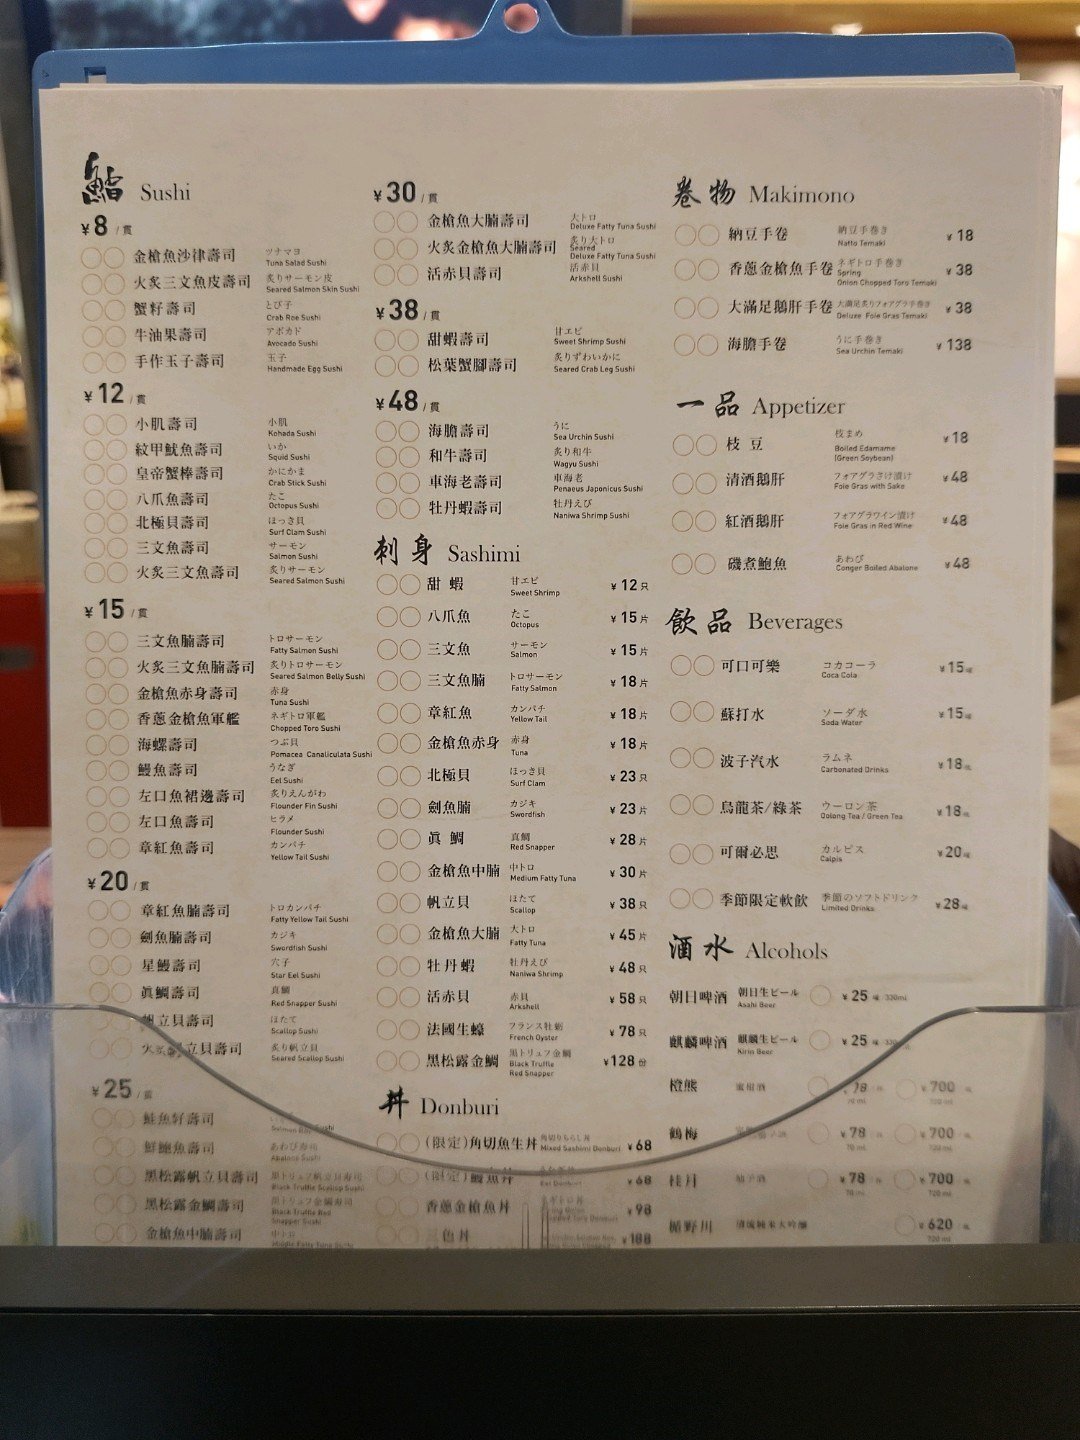 鮨 Sushi
¥8/貫
金槍魚沙律壽司 ツナマヨ
Tuna Salad Sushi
火炙三文魚皮壽司 炙りサーモン皮
Seared Salmon Skin Sushi
蟹籽壽司 とび子
Crab Roe Sushi
牛油果壽司 アボカド
Avocado Sushi
手作玉子壽司 玉子
Handmade Egg Sushi
¥12/貫
小肌壽司 小肌
Kohada Sushi
紋甲魷魚壽司 いか
Squid Sushi
皇帝蟹棒壽司 かにかま
Crab Stick Sushi
八爪魚壽司 たこ
Octopus Sushi
北極貝壽司 ほっき貝
Surf Clam Sushi
三文魚壽司 サーモン
Salmon Sushi
火炙三文魚壽司 炙りサーモン
Seared Salmon Sushi
¥15/貫
三文魚腩壽司 トロサーモン
Fatty Salmon Sushi
火炙三文魚腩壽司 炙りトロサーモン
Seared Salmon Belly Sushi
金槍魚赤身壽司 赤身
Tuna Sushi
香蔥金槍魚軍艦 ネギトロ軍艦
Chopped Toro Sushi
海螺壽司 つぶ貝
Pomacea Canaliculata Sushi
鰻魚壽司 うなぎ
Eel Sushi
左口魚裙邊壽司 炙りえんがわ
Flounder Fin Sushi
左口魚壽司 ヒラメ
Flounder Sushi
章紅魚壽司 カンパチ
Yellow Tail Sushi
¥20/貫
章紅魚腩壽司 トロカンパチ
Fatty Yellow Tail Sushi
劍魚腩壽司 カジキ
Swordfish Sushi
星鰻壽司 穴子
Star Eel Sushi
真鯛壽司 真鯛
Red Snapper Sushi
帆立貝壽司 ほたて
Scallop Sushi
火炙帆立貝壽司 炙り帆立貝
Seared Scallop Sushi
¥25/貫
鮭魚籽壽司
Salmon Roe Sushi
鮮鮑魚壽司 あわび壽司
Abalone Sushi
黑松露帆立貝壽司 黒トリュフ帆立貝壽司
Black Truffle Scallop Sushi
黑松露金鯛壽司 黒トリュフ金鯛壽司
Black Truffle Red
Snapper Sushi
金槍魚中腩壽司 中トロ
¥30/貫
金槍魚大腩壽司 大トロ
Deluxe Fatty Tuna Sushi
火炙金槍魚大腩壽司 炙り大トロ
Seared
Deluxe Fatty Tuna Sushi
活赤貝壽司 活赤貝
Arkshell Sushi
¥38/貫
甜蝦壽司 甘エビ
Sweet Shrimp Sushi
松葉蟹腳壽司 炙りずわいかに
Seared Crab Leg Sushi
¥48/貫
海膽壽司 うに
Sea Urchin Sushi
和牛壽司 炙り和牛
Wagyu Sushi
車海老壽司 車海老
Penaeus Japonicus Sushi
牡丹蝦壽司 牡丹えび
Naniwa Shrimp Sushi
刺身 Sashimi
甜蝦 甘エビ ¥12只
Sweet Shrimp
八爪魚 たこ ¥15片
Octopus
三文魚 サーモン ¥15片
Salmon
三文魚腩 トロサーモン ¥18片
Fatty Salmon
章紅魚 カンパチ ¥18片
Yellow Tail
金槍魚赤身 赤身 ¥18片
Tuna
北極貝 ほっき貝 ¥23只
Surf Clam
劍魚腩 カジキ ¥23片
Swordfish
真鯛 真鯛 ¥28片
Red Snapper
金槍魚中腩 中トロ ¥30片
Medium Fatty Tuna
帆立貝 ほたて ¥38只
Scallop
金槍魚大腩 大トロ ¥45片
Fatty Tuna
牡丹蝦 牡丹えび ¥48只
Naniwa Shrimp
活赤貝 赤貝 ¥58只
Arkshell
法國生蠔 フランス牡蛎 ¥78只
French Oyster
黑松露金鯛 黒トリュフ金鯛 ¥128份
Black Truffle
Red Snapper
丼 Donburi
(限定)角切魚生丼 角切りちらし丼 ¥68
Mixed Sashimi Donburi
(限定)鰻魚丼 ¥68
Eel Donburi
香蔥金槍魚丼 ネギトロ丼 ¥98
三色丼 ¥188
卷物 Makimono
納豆手卷 納豆手巻き ¥18
Natto Temaki
香蔥金槍魚手卷 ネギトロ手巻き ¥38
Spring
Onion Chopped Toro Temaki
大滿足鵝肝手卷 大満足炙りフォアグラ手巻き ¥38
Deluxe Foie Gras Temaki
海膽手卷 うに手巻き ¥138
Sea Urchin Temaki
一品 Appetizer
枝豆 枝まめ ¥18
Boiled Edamame
(Green Soybean)
清酒鵝肝 フォアグラさけ漬け ¥48
Foie Gras with Sake
紅酒鵝肝 フォアグラワイン漬け ¥48
Foie Gras in Red Wine
磯煮鮑魚 あわび ¥48
Conger Boiled Abalone
飲品 Beverages
可口可樂 コカコーラ ¥15罐
Coca Cola
蘇打水 ソーダ水 ¥15罐
Soda Water
波子汽水 ラムネ ¥18瓶
Carbonated Drinks
烏龍茶/綠茶 ウーロン茶 ¥18瓶
Oolong Tea / Green Tea
可爾必思 カルピス ¥20
Calpis
季節限定軟飲 季節のソフトドリンク ¥28
Limited Drinks
酒水 Alcohols
朝日啤酒 朝日生ビール ¥25罐 330ml
Asahi Beer
麒麟啤酒 麒麟生ビール ¥25罐 330ml
Kirin Beer
橙熊 蜜柑酒 ¥78 ¥700
70 ml 720 ml
鶴梅 ¥78 ¥700
70 ml 720 ml
桂月 柚子酒 ¥78 ¥700
70 ml 720 ml
楯野川 清流純米大吟釀 ¥620
720 ml